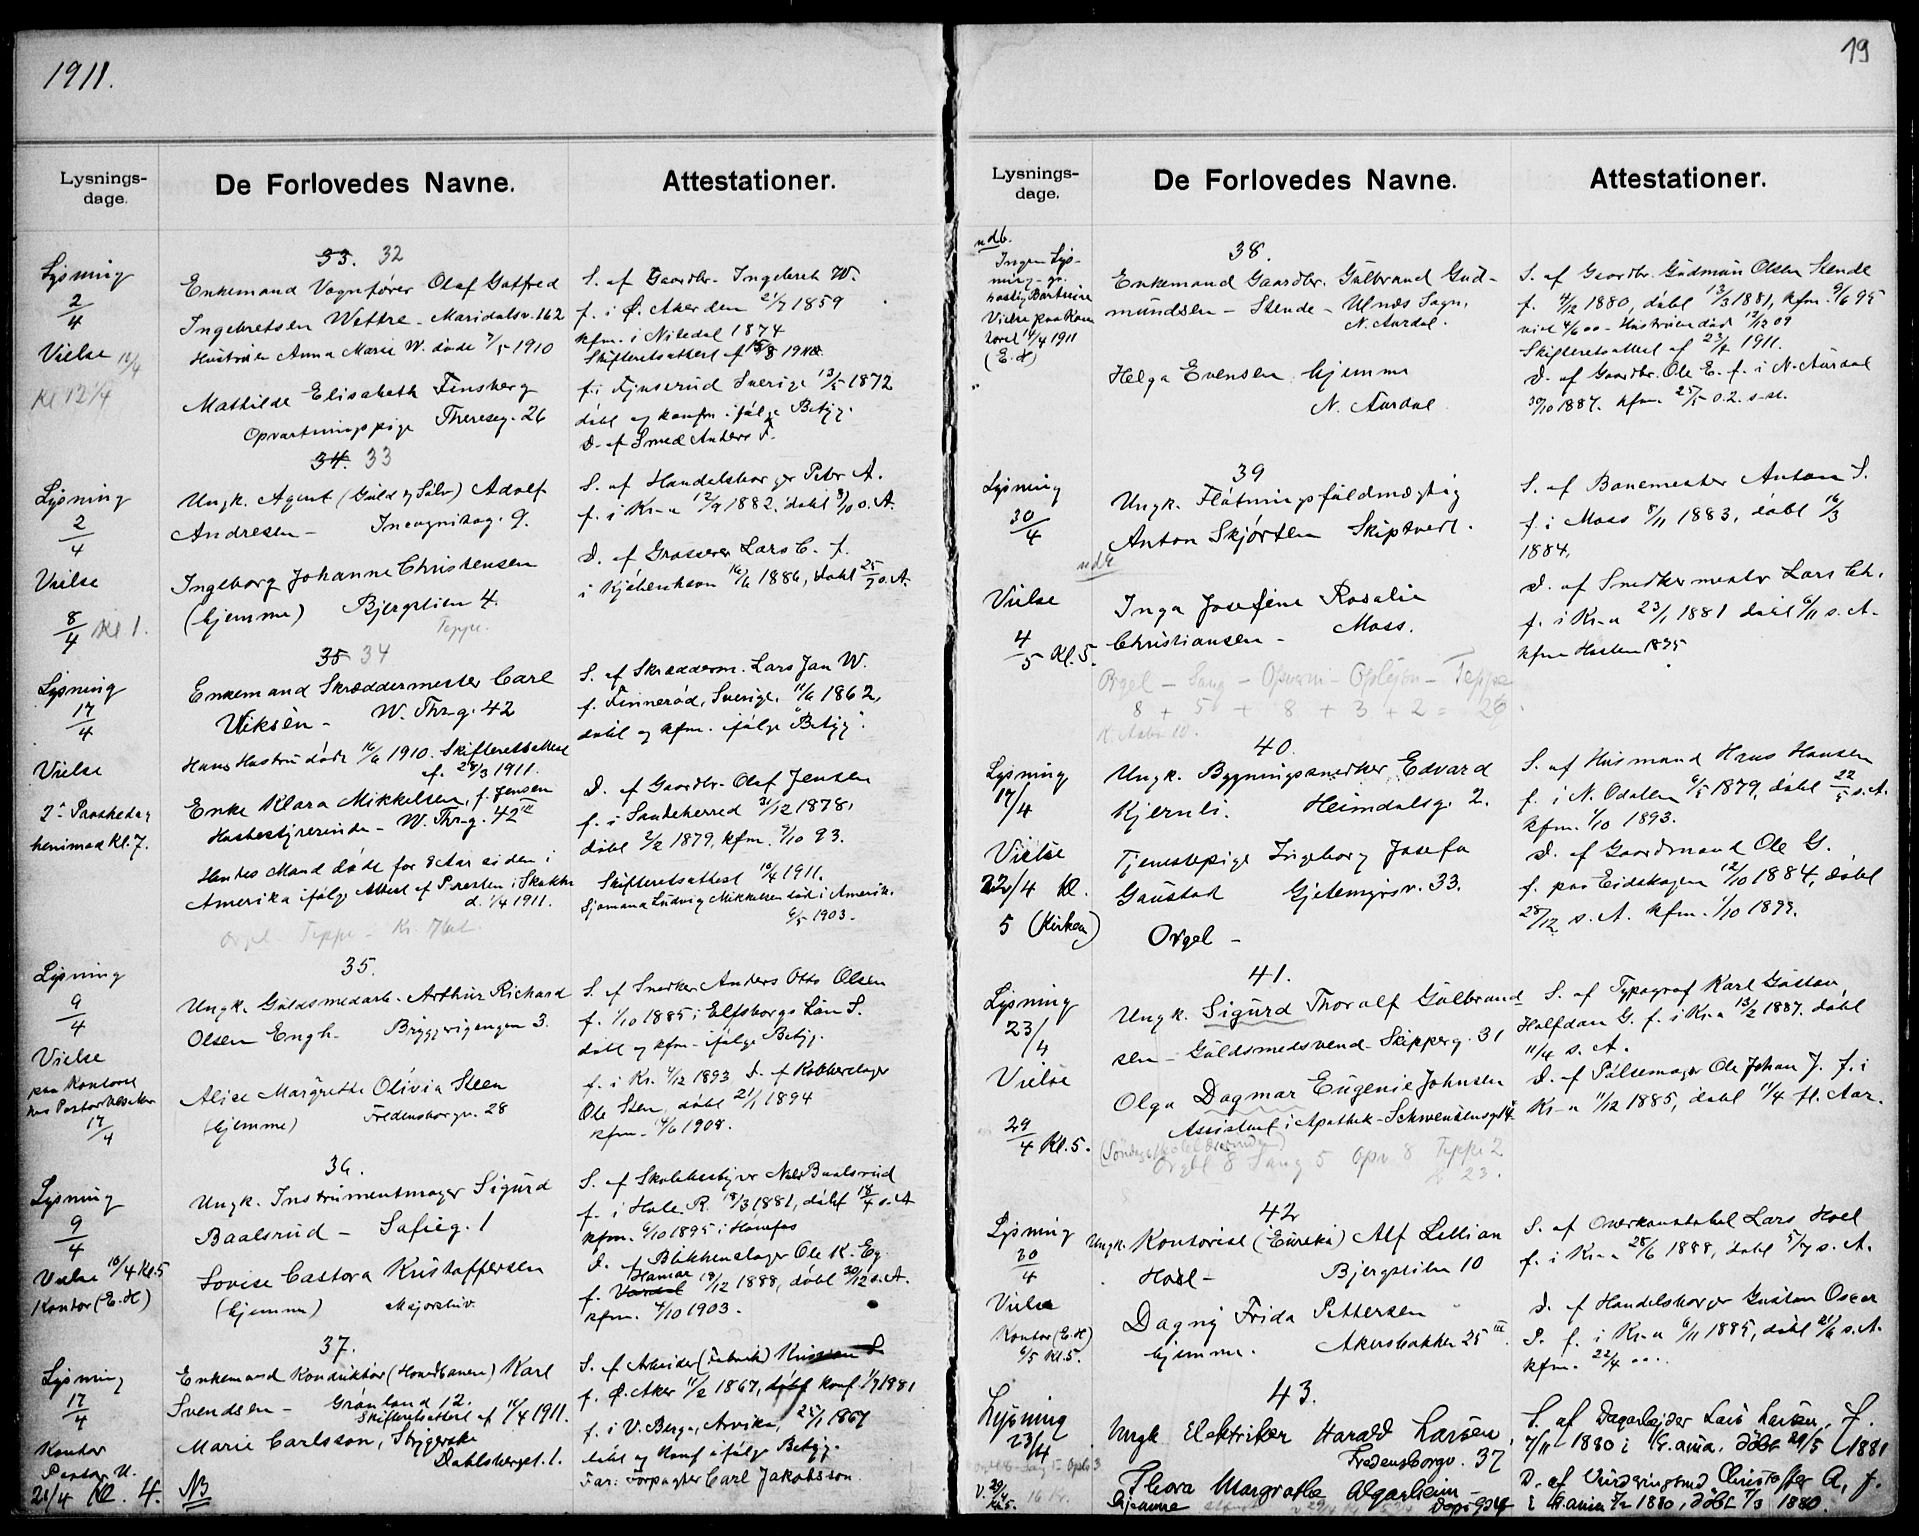 1911.
Lysnings-
dage.
De Forlovedes Navne.
Attestationer.
33. 32
Lysning
2/4
Vielse 12/4
Kl 12 1/4
Enkemand Vognfører Olaf Gotfred
Ingebretsen Wettre - Maridalsv. 162
Hustruen Anna Marie W. døde 7/5 1910
Mathilde Elisabeth Finsberg
Opvartningspige Thereseg. 26
S. af Gaardbr. Ingebret W.
f. i Ø. Aker den 2/7 1859
kfm. i Nitedal 1874
Skifteretsattest af
f. i Sverige 13/5 1872
døbt og konfm ifølge Betyg.
D. af Smed Anders F.
34. 33
Lysning
2/4
Vielse
8/4 Kl 1.
Ungk. Agent (Guld og Sølv) Adolf
Andresen - Incognitog. 9.
Ingeborg Johanne Christensen
(hjemme) Bjergstien 4.
Teppe.
S. af Handelsborger Peter A.
f. i Kr-a 12/9 1882. døbt 8/10 s. A.
D. af Grosserer Lars C. f.
i Kjøbenhavn 16/6 1886, døbt 25/7 s. A.
35 34
Lysning
17/4
Vielse
2den Paaskedag
henimod Kl. 7.
Enkemand Skræddermester Carl
Viksén - W. Thr-g. 42
Hans Hustru døde 16/6 1910. Skifteretsattest
af 28/3 1911.
Enke Klara Mikkelsen, f. Jensen
Husbestyrerinde - W. Thr-g. 42 III
Hendes Mand døde for 8 Aar siden i
Amerika ifølge Attest af Presten i
d. 1/4 1911.
Orgel Teppe - Kr.
S. af Skrædderm. Lars Jan W.
f. Finnerød, Sverige, 11/6 1862,
døbt og kfm. ifølge Betyg.
D. af Gaardbr. Olaf Jensen
f. i Sandeherred 31/12 1878,
døbt 2/2 1879, kfm. 9/10 93.
Skifteretsattest 10/4 1911.
Sjømand Ludvig Mikkelsen død i Amerik.
6/5 1903.
35.
Lysning
9/4
Vielse
paa Kontoret
hos Pastor
17/4
Ungk. Guldsmedarb. Arthur Richard
Olsen Engh. Bryggerigangen 3.
Alise Margrethe Olivia Steen
(hjemme) Fredensborgv. 28
S. af Snedker Anders Otto Olsen
f. 1/10 1885 i Elfsborgs Län S.
døbt og kfm. ifølge Betyg.
f. i Kr. 4/12 1893 D. af Kobberslager
Ole Sten, døbt 21/1 1894
kfm. 4/6 1908.
36.
Lysning
9/4
Vielse 10/4 Kl. 5
Kontor (E. H)
Ungk. Instrumentmager Sigurd
Baalsrud - Sofieg. 1
Lovise Castora Kristoffersen
(hjemme) Majorstuv.
S. af Skolebestyrer Nils Baalsrud
f. i Hole. R. 18/3 1881, døbt 18/4 s. A
kfm. 6/10 1895 i Hønefos
D. af Blikkenslager Ole K. Eg.
Hamar
f. 18/12 1888, døbt 30/12 s. A.
kfm. 4/10 1903.
37.
Lysning
17/4
Kontor
Pastor U.
21/4 Kl. 4.
Enkemand Konduktør (Hovedbanen) Karl
Svendsen - Grønland 12.
Skifteretsattest af 10/4 1911.
Marie Carlsson, Strygerske
Dahlsberget. 1.
NB
S. af Arbeider (Fabrik)
f. Ø. Aker 11/2 1867, døbt konf 1/9 1881
f. i V. Berga, Arvika, 25/1 1867
døbt og konf ifølge Betyg.
Far: Forpagter Carl Jakobsson.
19
Lysnings-
dage.
De Forlovedes Navne.
Attestationer.
udb.
Ingen Lys-
ning -
Vielse paa Kon
toret 11/4 1911
(E. H)
38.
Enkemand Gaardbr. Gulbrand Gud-
mundsen - Stende - Ulnæs Sogn,
N. Aurdal.
Helga Evensen, hjemme
N. Aurdal
S. af Gaardbr. Gudmun Olsen Stende
f. 4/2 1880, døbt 13/3 1881, kfm. 9/6 95
viet 4/6 00 - Hustruen død 12/12 09
Skifteretsattest af 23/2 1911.
D. af Gaardbr. Ole E. f. i N. Aurdal
30/10 1887. kfm. 25/5 02. s. st.
39
Lysning
30/4
Vielse
4/5 Kl. 5.
Ungk. Fløtningsfuldmægtig
Anton Skjørten Skiptvert.
udb
Inga Josefine Rosalie
Christiansen - Moss.
Orgel - Sang - Opvarm - Oplysn - Teppe
8 + 5 + 8 + 3 + 2 = 26.
S. af Banemester Anton S.
f. i Moss 8/11 1883, døbt 16/3
1884,
D. af Snedkermester Lars Ch.
f. i Kr-a 23/1 1881 døbt 6/11 s. A.
kfm Høsten 1895
40.
Lysning
17/4
Vielse
22/4 Kl.
5 (Kirken)
Ungk. Bygningssnedker Edvard
Kjernli. Heimdalsg. 2.
Tjenestepige Ingeborg Josefa
Gaustad Gjetemyrsv. 33.
Orgel -
S. af Husmand Hans Hansen
f. i N. Odalen 6/5 1879, døbt 22/5 s. A.
kfm. 1/10 1893.
D. af Gaardmand Ole G.
f. paa Eidskogen 12/10 1884, døbt
28/12 s. A. kfm. 1/10 1899.
41.
Lysning
23/4
Vielse
29/4 Kl. 5.
Ungk. Sigurd Thoralf Gulbrand
sen - Guldsmedsvend - Skipperg. 31
Olga Dagmar Eugenie Johnsen
Assistent i Apothek - Schwensensgt 14
Orgel 8 Sang 5 Opv 8 Teppe 2
23.
S. af Typograf Karl Gustav
Halfdan G. f. i Kr-a 13/2 1887. døbt
11/4 s. A.
D. af Pølsemager Ole Johan J. f. i
Kr-a 11/12 1885, døbt 11/4 fl. Aar.
42
Lysning
30/4
Vielse
Kontor (E. H)
6/5 Kl. 5.
Ungk. Kontorist (Eureka) Alf Lillian
Hoel - Bjergstien 10
Dagny Frida Pettersen
hjemme. Akersbakken 25 III
S. af Overkonstabel Lars Hoel
f. i Kr-a 28/6 1888, døbt 5/7 s. A.
D. af Handelsborger Gustav Oscar
P. f. i Kr-a 6/11 1885, døbt 21/6 s. A.
kfm. 22/4 00.
43.
Lysning
23/4
V. 29/4
Kl. 5.
16 Kr.
Ungk Elektriker Harald Larsen
Fredensborgv. 37
Thora Margrethe Algarheim -
hjemme
S. af Dagarbejder Lars Larsen, f.
7/11 1880 i Kr.ania, døbt 29/5 1881
D. af Vurderingsmd Christoffer A, f.
i Kr.ania 5/2 1880, døbt 7/3 1880.